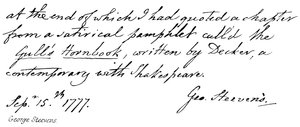 at the end of which I had quoted a chapter
from a satirical pamphlet call'd the
Gull's Hornbook, written by Decker, a
contemporary with Shakespeare.
Geo. Steevens.
Sepr. 15.th 1777.
George Steevens